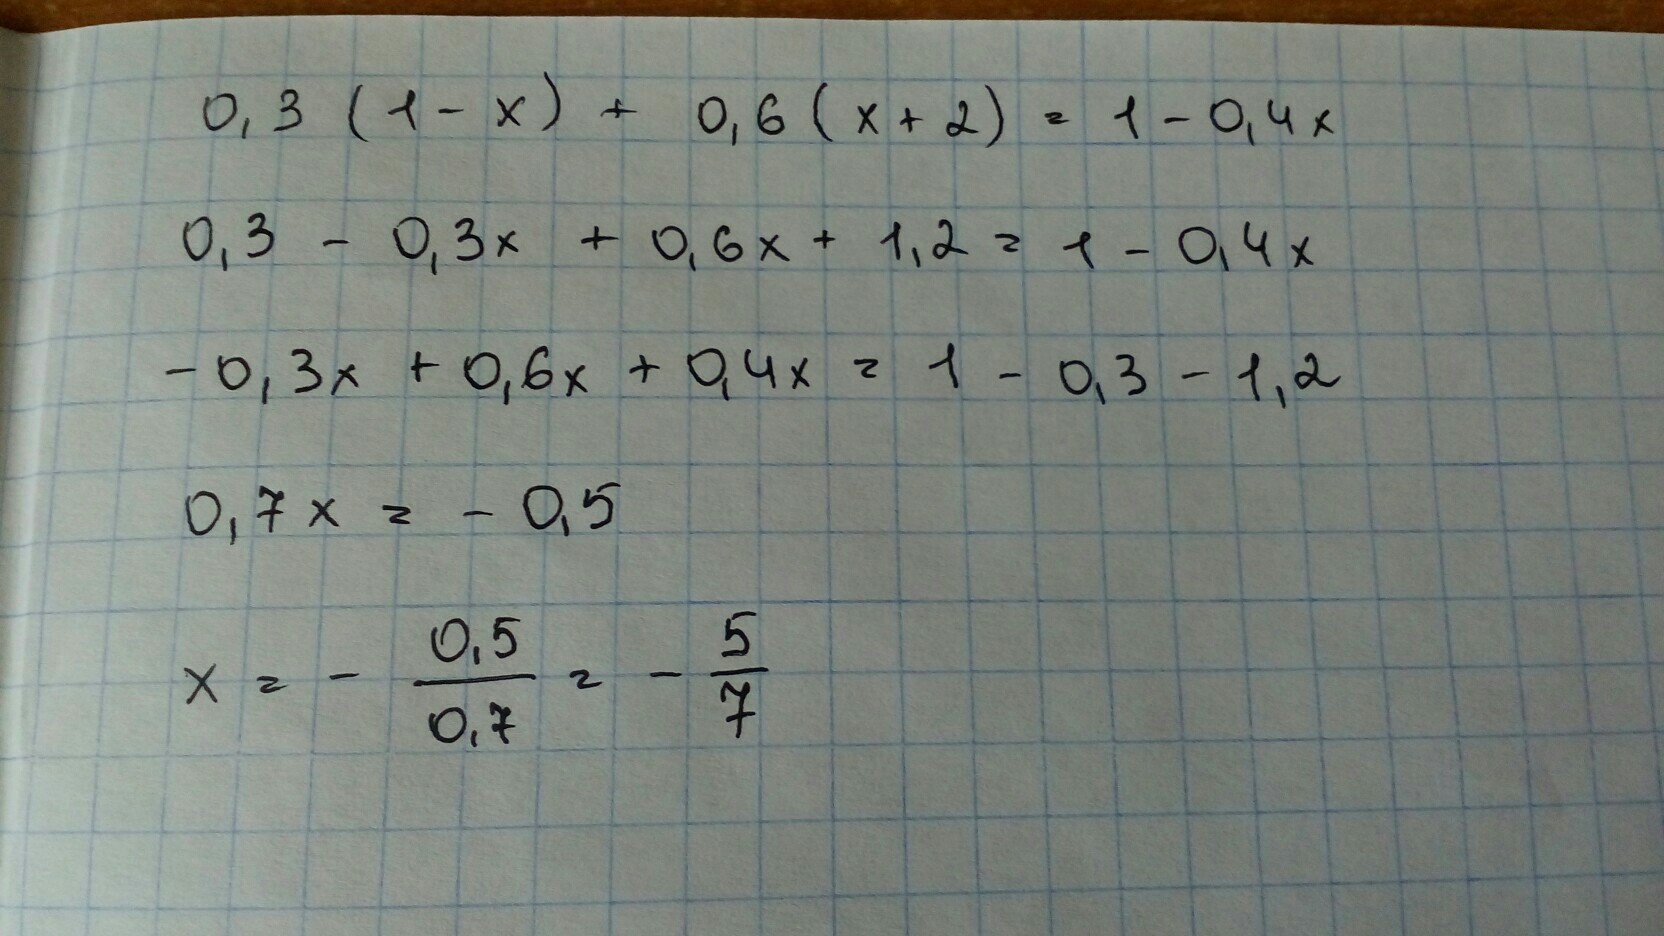 0,3 (1 - x) + 0,6 (x + 2) = 1 - 0,4x
0,3 - 0,3x + 0,6x + 1,2 = 1 - 0,4x
- 0,3x + 0,6x + 0,4x = 1 - 0,3 - 1,2
0,7x = - 0,5
x = - 0,5/0,7 = - 5/7